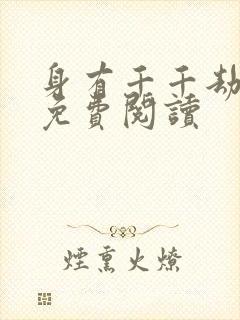 身有千千劫
免費閱讀
煙熏火燎